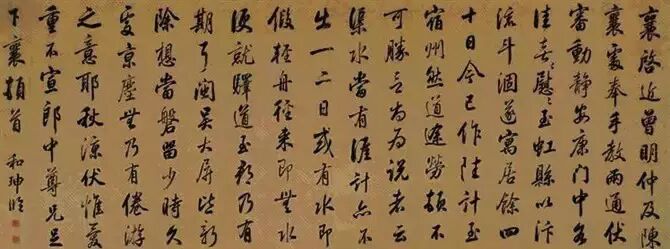 襄啓近曾明仲及陳
襄處奉手教兩通伏
審動靜安康門中各
佳喜〻慰〻至虹縣以汴
流斗涸遂寓居餘四
十日今已作陸計至
宿州然道途勞頓不
可勝言尚為說者云
渠水當有涯計亦不
出一二日或有水即
假輕舟徑來即無水
便就驛道至都乃有
期耳閩吳大屏皆新
除想當磐留少時久
處京塵無乃有倦游
之意耶秋涼伏惟愛
重不宣郎中尊兄足
下襄頓首 和珅臨